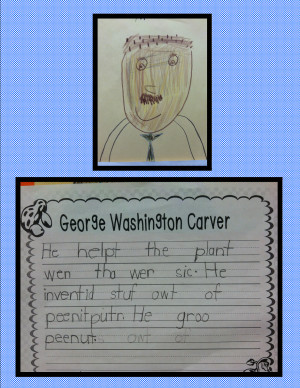 George Washington Carver
He helpt the plant
wen tha wer sic. He
inventid stuf owt of
peenitputr. He groo
peenut.